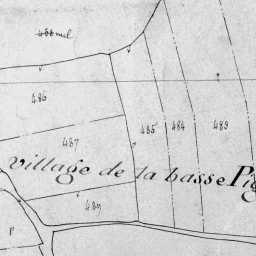 486
487
485
484
483
village de la basse Pig
489
P